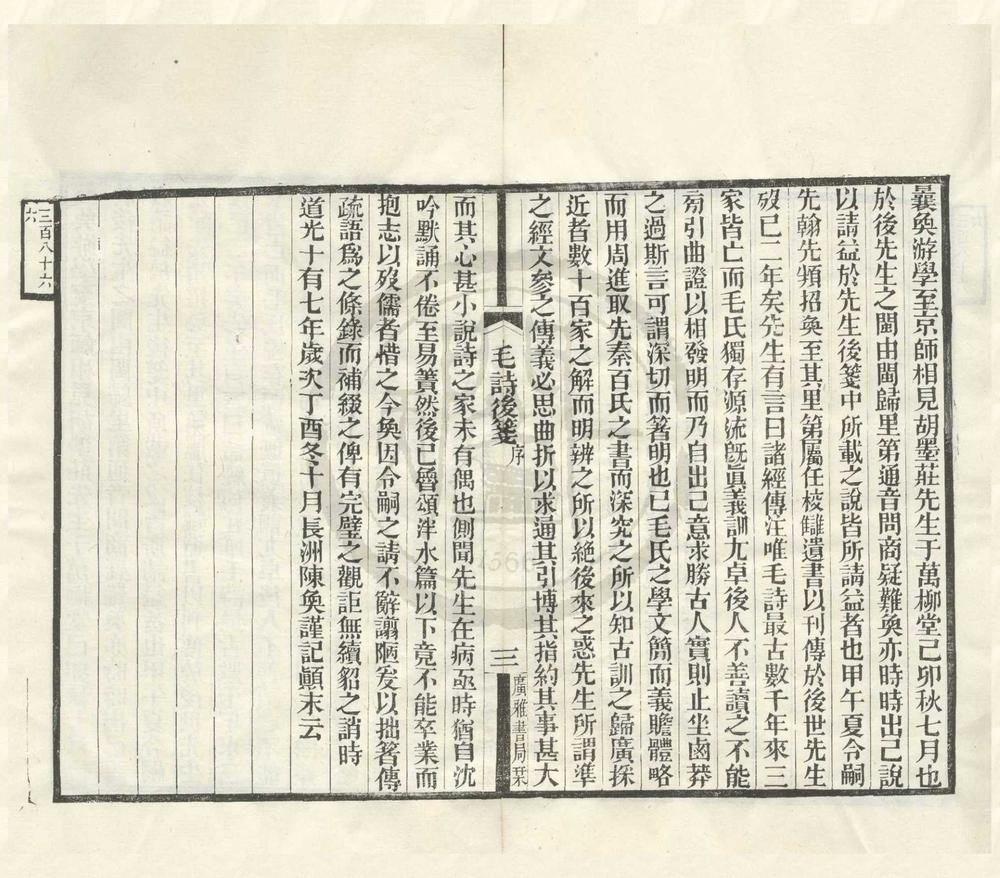 曩奐游學至京師相見胡墨莊先生于萬柳堂己卯秋七月也
於後先生之閩由閩歸里第通音問商疑難奐亦時時出己說
以請益於先生後箋中所載之說皆所請益者也甲午夏令嗣
先翰先頻招奐至其里第屬任校讎遺書以刊傳於後世先生
歿已二年矣先生有言曰諸經傳注唯毛詩最古數千年來三
家皆亡而毛氏獨存源流旣眞義訓尤卓後人不善讀之不能
㫄引曲證以相發明而乃自出己意求勝古人實則止坐鹵莽
之過斯言可謂深切而箸明也已毛氏之學文簡而義贍體略
而用周進取先秦百氏之書而深究之所以知古訓之歸廣採
近者數十百家之解而明辨之所以絕後來之惑先生所謂準
之經文參之傳義必思曲折以求通其引博其指約其事甚大
毛詩後箋
序
三
廣雅書局栞
而其心甚小說詩之家未有偶也側聞先生在病亟時猶自沈
吟默誦不倦至易簀然後已魯頌泮水篇以下竟不能卒業而
抱志以歿儒者惜之今奐因令嗣之請不辭譾陋爰以拙箸傳
疏語爲之條錄而補綴之俾有完璧之觀詎無續貂之誚時
道光十有七年歲次丁酉冬十月長洲陳奐謹記顚末云
三百八十六
六